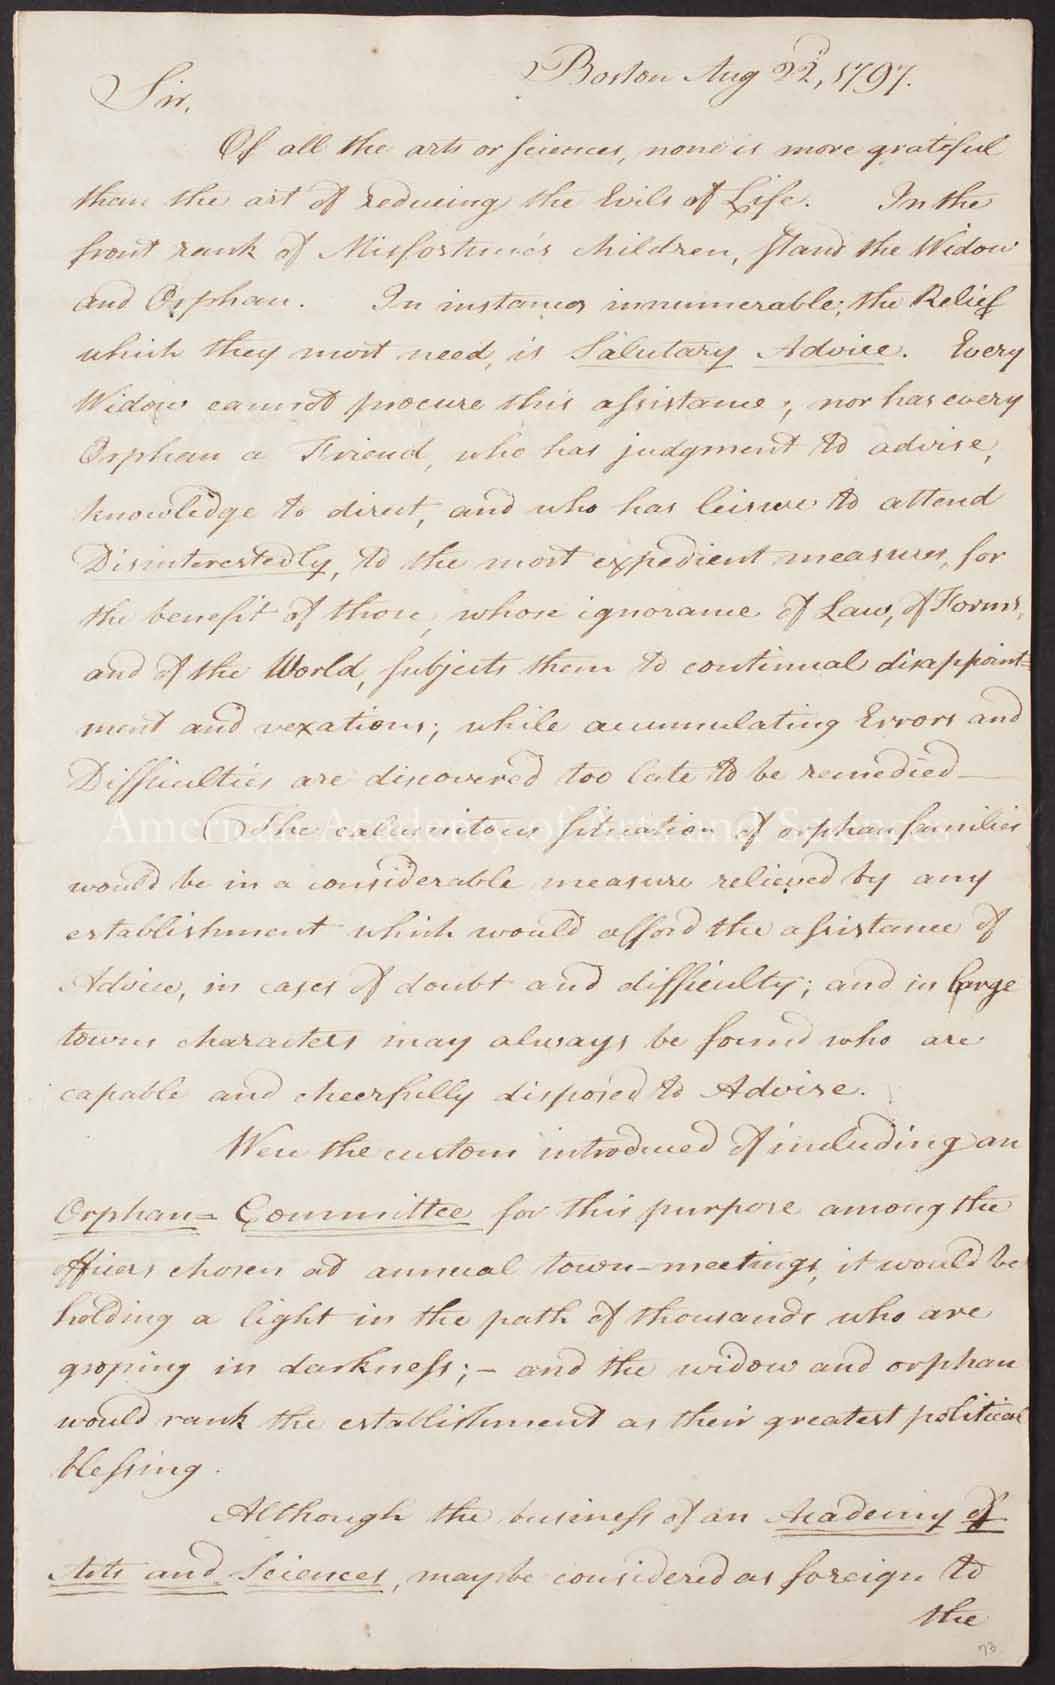 Boston Aug 22d, 1797.
Sir,
Of all the arts or sciences, none is more grateful
than the art of reducing the Evils of Life. In the
front rank of Misfortune's children, stand the Widow
and Orphan. In instances innumerable, the Relief
which they most need, is Salutary Advice. Every
Widow cannot procure this assistance; nor has every
Orphan a Friend, who has judgment to advise,
knowledge to direct, and who has leisure to attend
Disinterestedly, to the most expedient measures, for
the benefit of those, whose ignorance of Law, of Forms,
and of the World, subjects them to continual disappoint=
ment and vexations; while accumulating Errors and
Difficulties are discovered too late to be remedied—
American Academy of Arts and Sciences
The calamitous situation of orphan families
would be in a considerable measure relieved by any
establishment which would afford the assistance of
Advice, in cases of doubt and difficulty; and in large
towns characters may always be found who are
capable and cheerfully disposed to Advise.
Were the custom introduced of including an
Orphan=Committee for this purpose among the
officers chosen at annual town-meetings, it would be
holding a light in the path of thousands who are
groping in darkness;— and the widow and orphan
would rank the establishment as their greatest political
blessing.
Although the business of an Academy of
Arts and Sciences, may be considered as foreign to
the
73